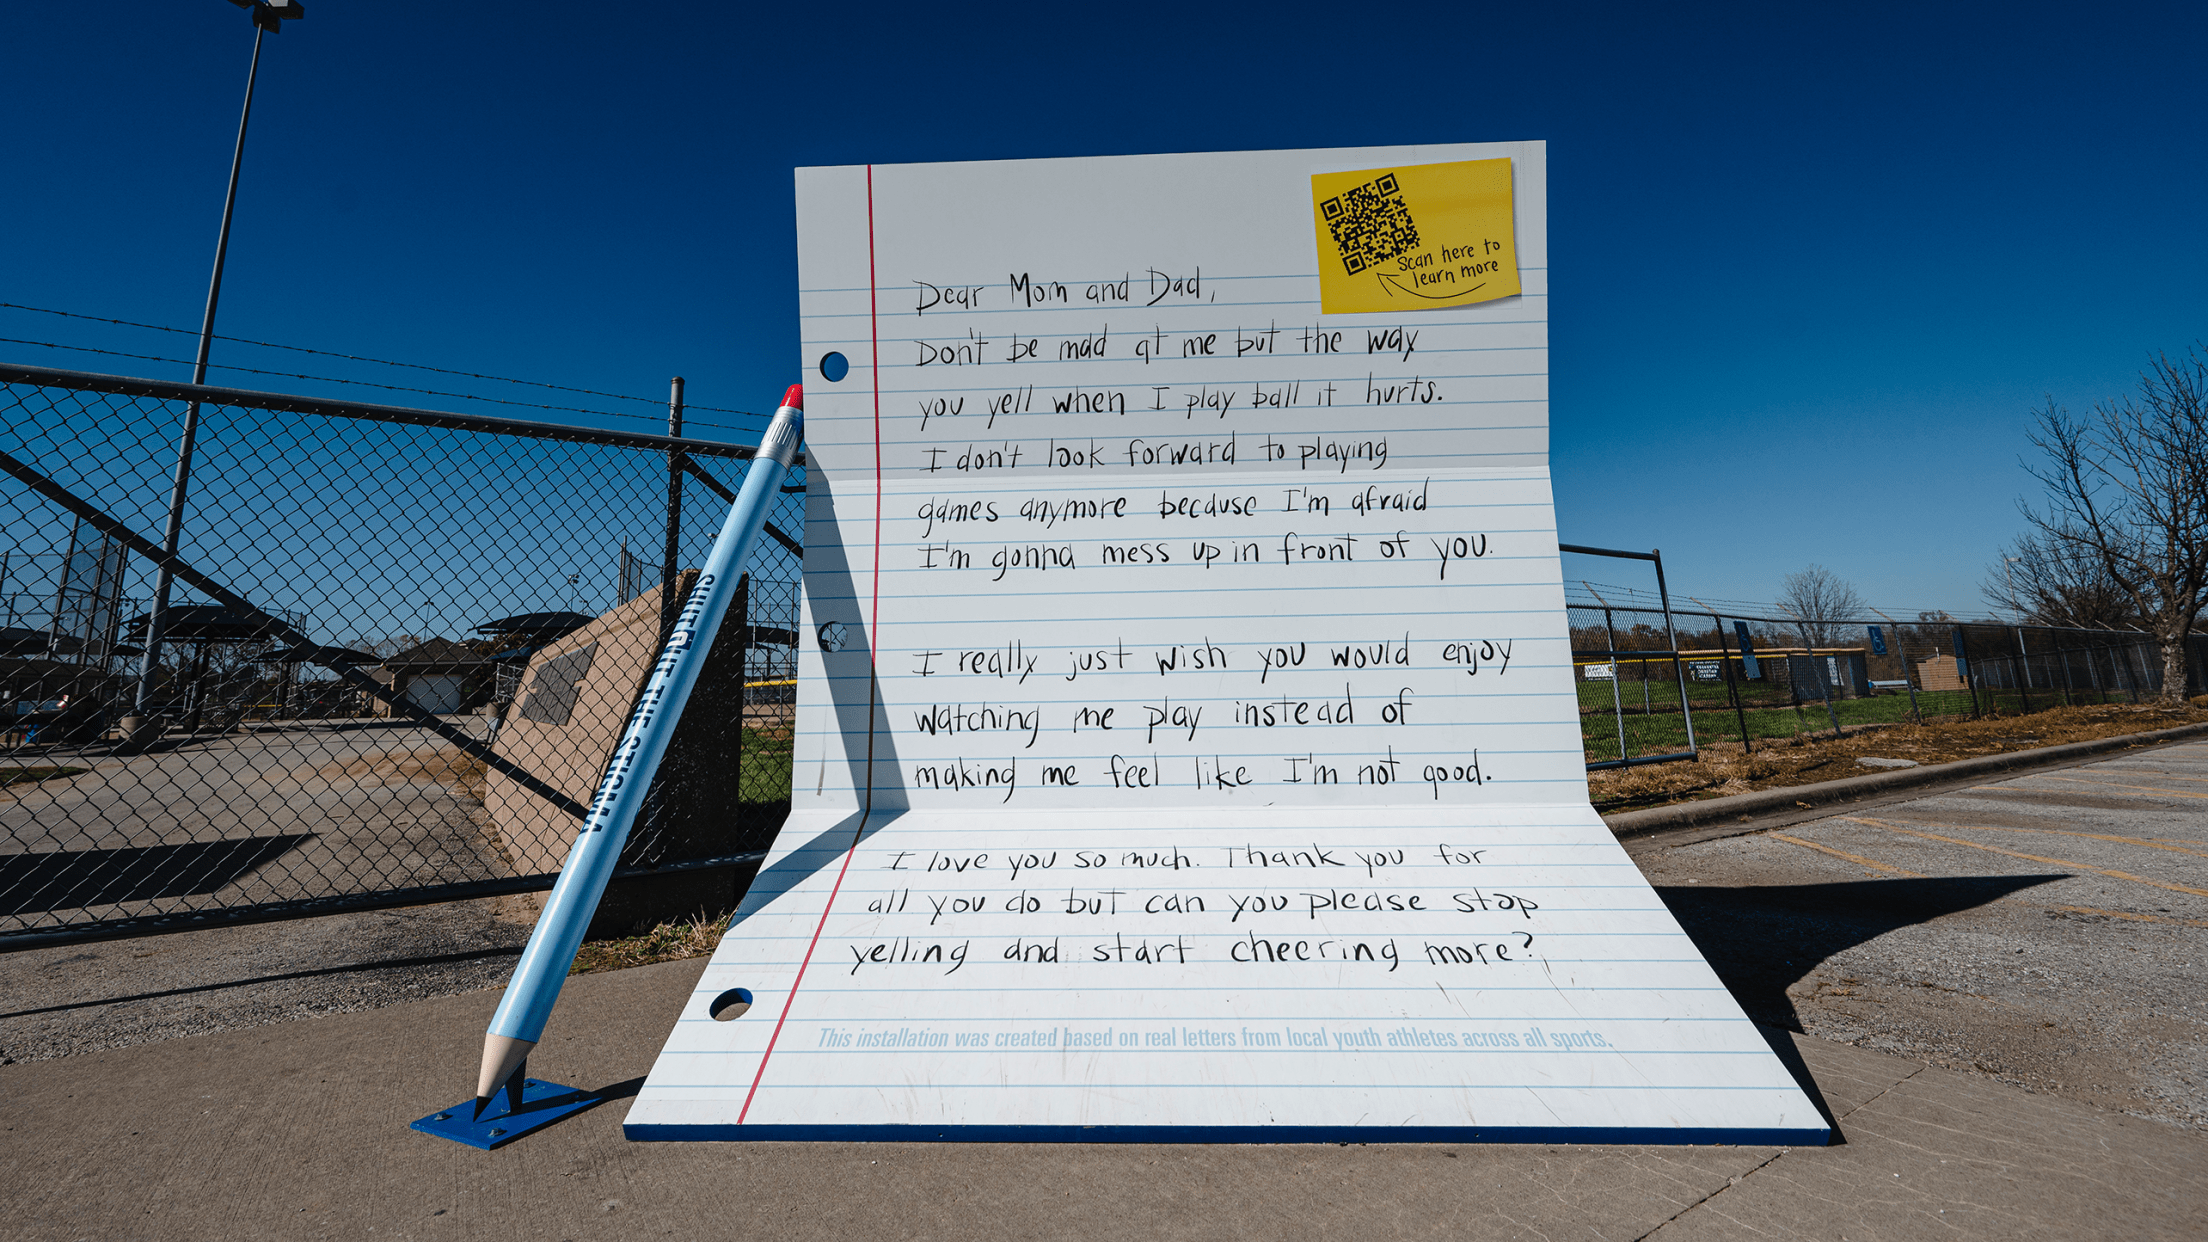 Scan here to
learn more
Dear Mom and Dad,
Don't be mad at me but the way
you yell when I play ball it hurts.
I don't look forward to playing
games anymore because I'm afraid
I'm gonna mess up in front of you.
I really just wish you would enjoy
watching me play instead of
making me feel like I'm not good.
I love you so much. Thank you for
all you do but can you please stop
yelling and start cheering more?
This installation was created based on real letters from local youth athletes across all sports.
SHUT OUT THE STIGMA